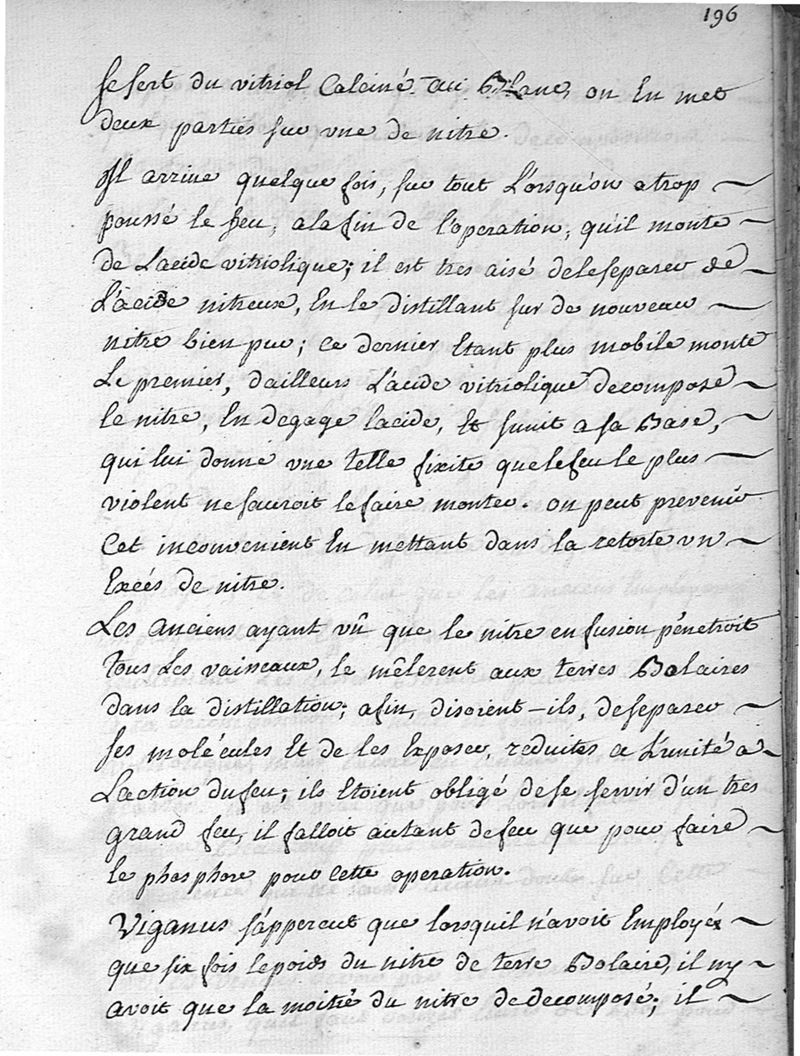 196
se sert du vitriol Calciné au Blanc, on En met
deux parties sur vne de nitre.
Il arrive quelque fois, sur tout Lorsqu'on a trop
poussé le feu, a la fin de l'operation, qu'il monte
de L'acide vitriolique; il est tres aisé de le separer de
L'acide nitreux, En le distillant sur de nouveau
nitre bien pur; ce dernier Etant plus mobile monte
Le premier, d'ailleurs L'acide vitriolique decompose
le nitre, En degage l'acide, Et s'unit a sa Base,
qui lui donne vne telle fixité que le feu le plus
violent ne sauroit le faire monter. on peut prevenir
Cet inconvenient En mettant dans la retorte vn
Excés de nitre.
Les anciens ayant vû que le nitre en fusion pénetroit
tous Les vaisseaux, le mêlerent aux terres Bolaires
dans la distillation; afin, disoient-ils, de separer
ses molécules Et de les Exposer, reduites a L'unité a
L'action du feu; ils Etoient obligé de se servir d'un tres
grand feu, il falloit autant de feu que pour faire
le phosphore pour cette operation.
Viganus s'apperçut que lorsquil n'avoit Employé
que six fois le poids du nitre de terre Bolaire, il ny
avoit que la moitié du nitre de decomposé; il